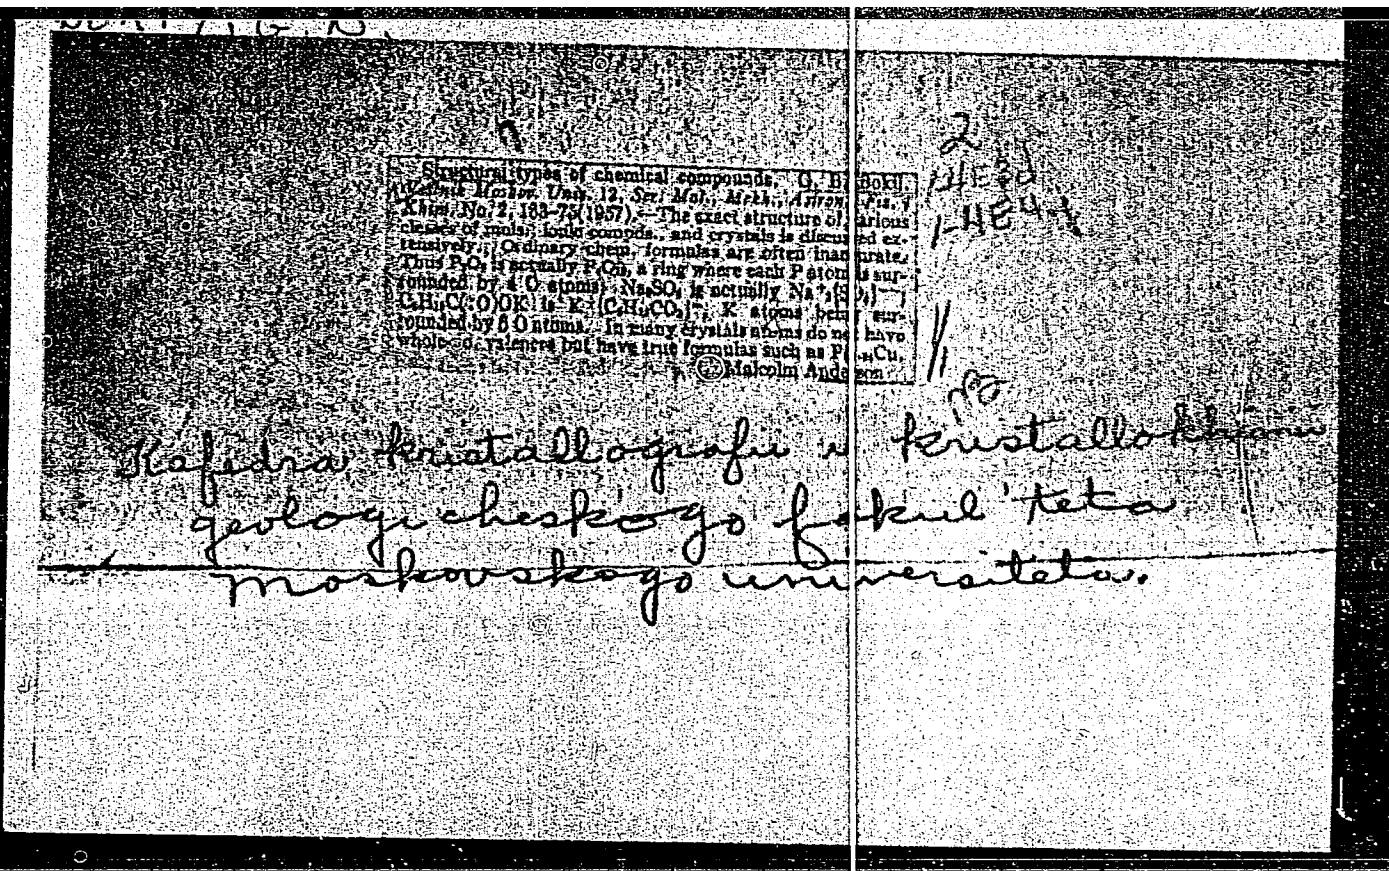 G. B.
2
Structural types of chemical compounds. G. B. Bokii.
Vestnik Moskov. Univ. 12, Ser. Mat., Mekh., Astron., Fiz. i
Khim. No. 2, (1957).—The exact structure of various
classes of mols., ionic compds. and crystals is discussed ex-
tensively. Ordinary chem. formulas are often inaccurate.
Thus is actually a ring where each P atom is sur-
rounded by 4 O atoms; Na₂SO₄ is actually
is K atoms being sur-
rounded by 6 O atoms. In many crystals atoms do not have
whole-no. valences but have true formulas such as
Malcolm Anderson
Kafedra kristallografii i kristallokhimii
geologicheskogo fakul'teta
Moskovskogo universiteta.